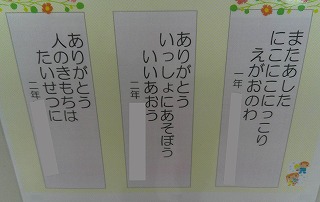 またあした
にこにこにっこり
えがおのわ
一年
ありがとう
いっしょにあそぼう
いいあおう
二年
ありがとう
人のきもちは
たいせつに
二年